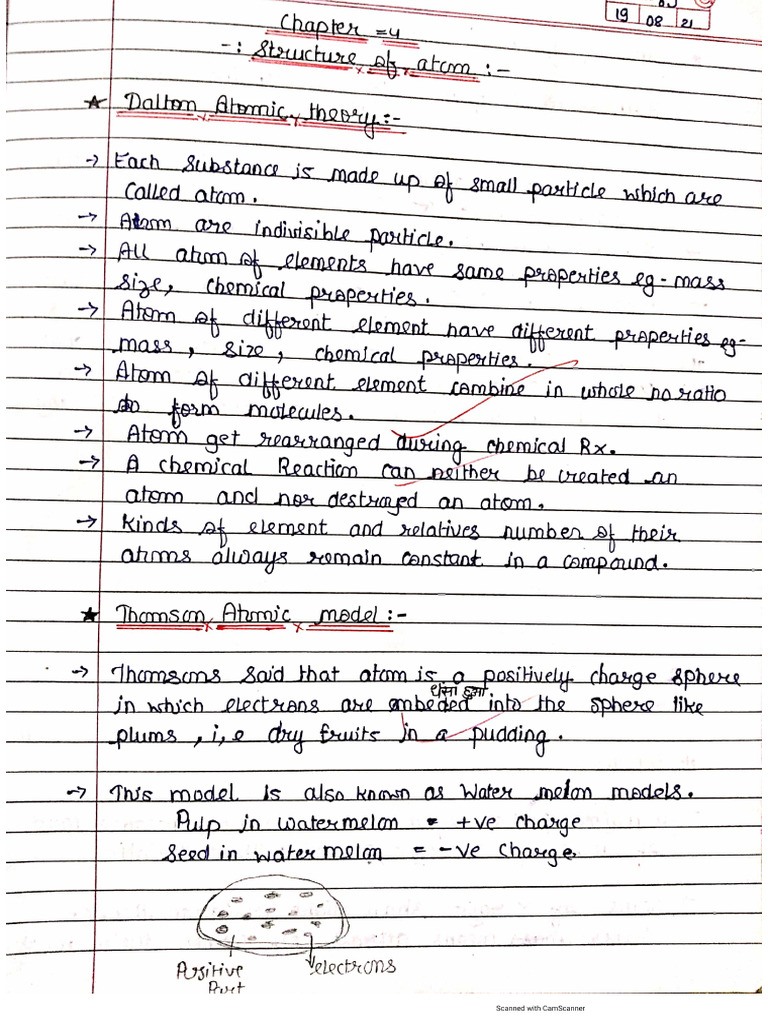 19 08 21
Chapter = 4
-: Structure of atom :-
★ Dalton Atomic theory:-
→ Each substance is made up of small particle which are
called atom.
→ Atom are indivisible particle.
→ All atom of elements have same properties eg - mass
size, chemical properties.
→ Atom of different element have different properties eg-
mass, size, chemical properties.
→ Atom of different element combine in whole no ratio
to form molecules.
→ Atom get rearranged during chemical Rx.
→ A chemical Reaction can neither be created an
atom and nor destroyed an atom.
→ Kinds of element and relatives number of their
atoms always remain constant in a compound.
★ Thomson Atomic model:-
→ Thomsons said that atom is a positively charge sphere
धंसा हुआ
in which electrons are embeded into the sphere like
plums, i,e dry fruits in a pudding.
→ This model is also known as Water melon models.
Pulp in watermelon = +ve charge
Seed in water melon = -ve charge
Positive electrons
Part
Scanned with CamScanner